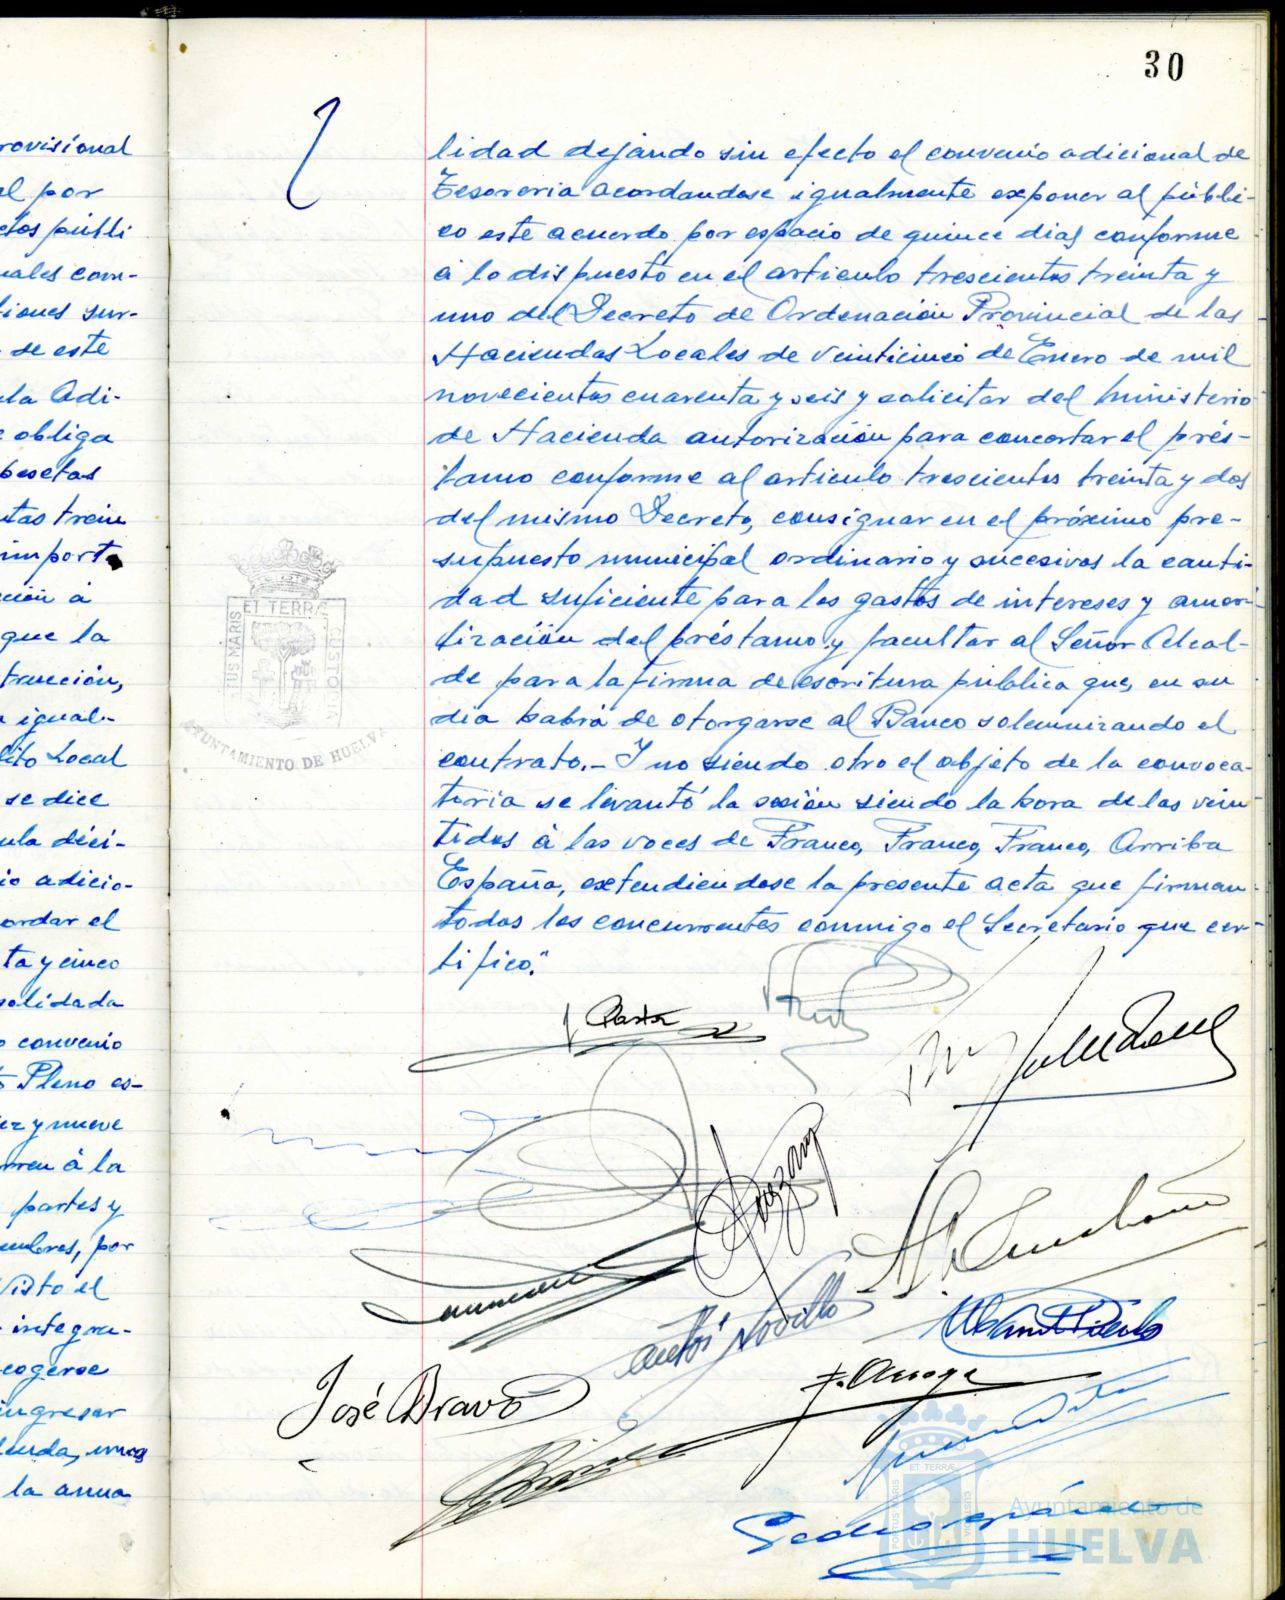 30
rovisional
al por
ctos públi
uales com-
ciones sur-
de este
ula Adi-
e obliga
pesetas
ntas trein
import
ción á
que la
trucción,
igual-
dito Local
se dice
ula déci-
io adicio-
ordar el
ta y cinco
solidada
o convenio
Pleno es-
ez y nueve
rren á la
partes y
por
Visto el
integra-
cogerse
ingresar
la anua
lidad dejando sin efecto el convenio adicional de
Tesoreria acordandose igualmente exponer al públi-
co este acuerdo por espacio de quince dias conforme
á lo dispuesto en el articulo trescientos treinta y
uno del Decreto de Ordenación Provincial de las
Haciendas Locales de veinticinco de Enero de mil
novecientos cuarenta y seis y solicitar del Ministerio
de Hacienda autorización para concertar el prés-
tamo conforme al articulo trescientos treinta y dos
del mismo Decreto, consignar en el próximo pre-
supuesto municipal ordinario y sucesivos la canti-
dad suficiente para los gastos de intereses y amor-
tización del préstamo y facultar al Señor Alcal-
de para la firma de escritura pública que, en su
dia habrá de otorgarse al Banco solemnizando el
contrato.- Y no siendo otro el objeto de la convoca-
toria se levantó la sesión siendo la hora de las vein
tidos á las voces de Franco, Franco, Franco, Arriba
España, extendiendose la presente acta que firman
todos los concurrentes conmigo el Secretario que cer-
tifico."
PORTUS MARIS ET TERRÆ CUSTODIA
AYUNTAMIENTO DE HUELVA
José Bravo
Ayuntamiento de
HUELVA